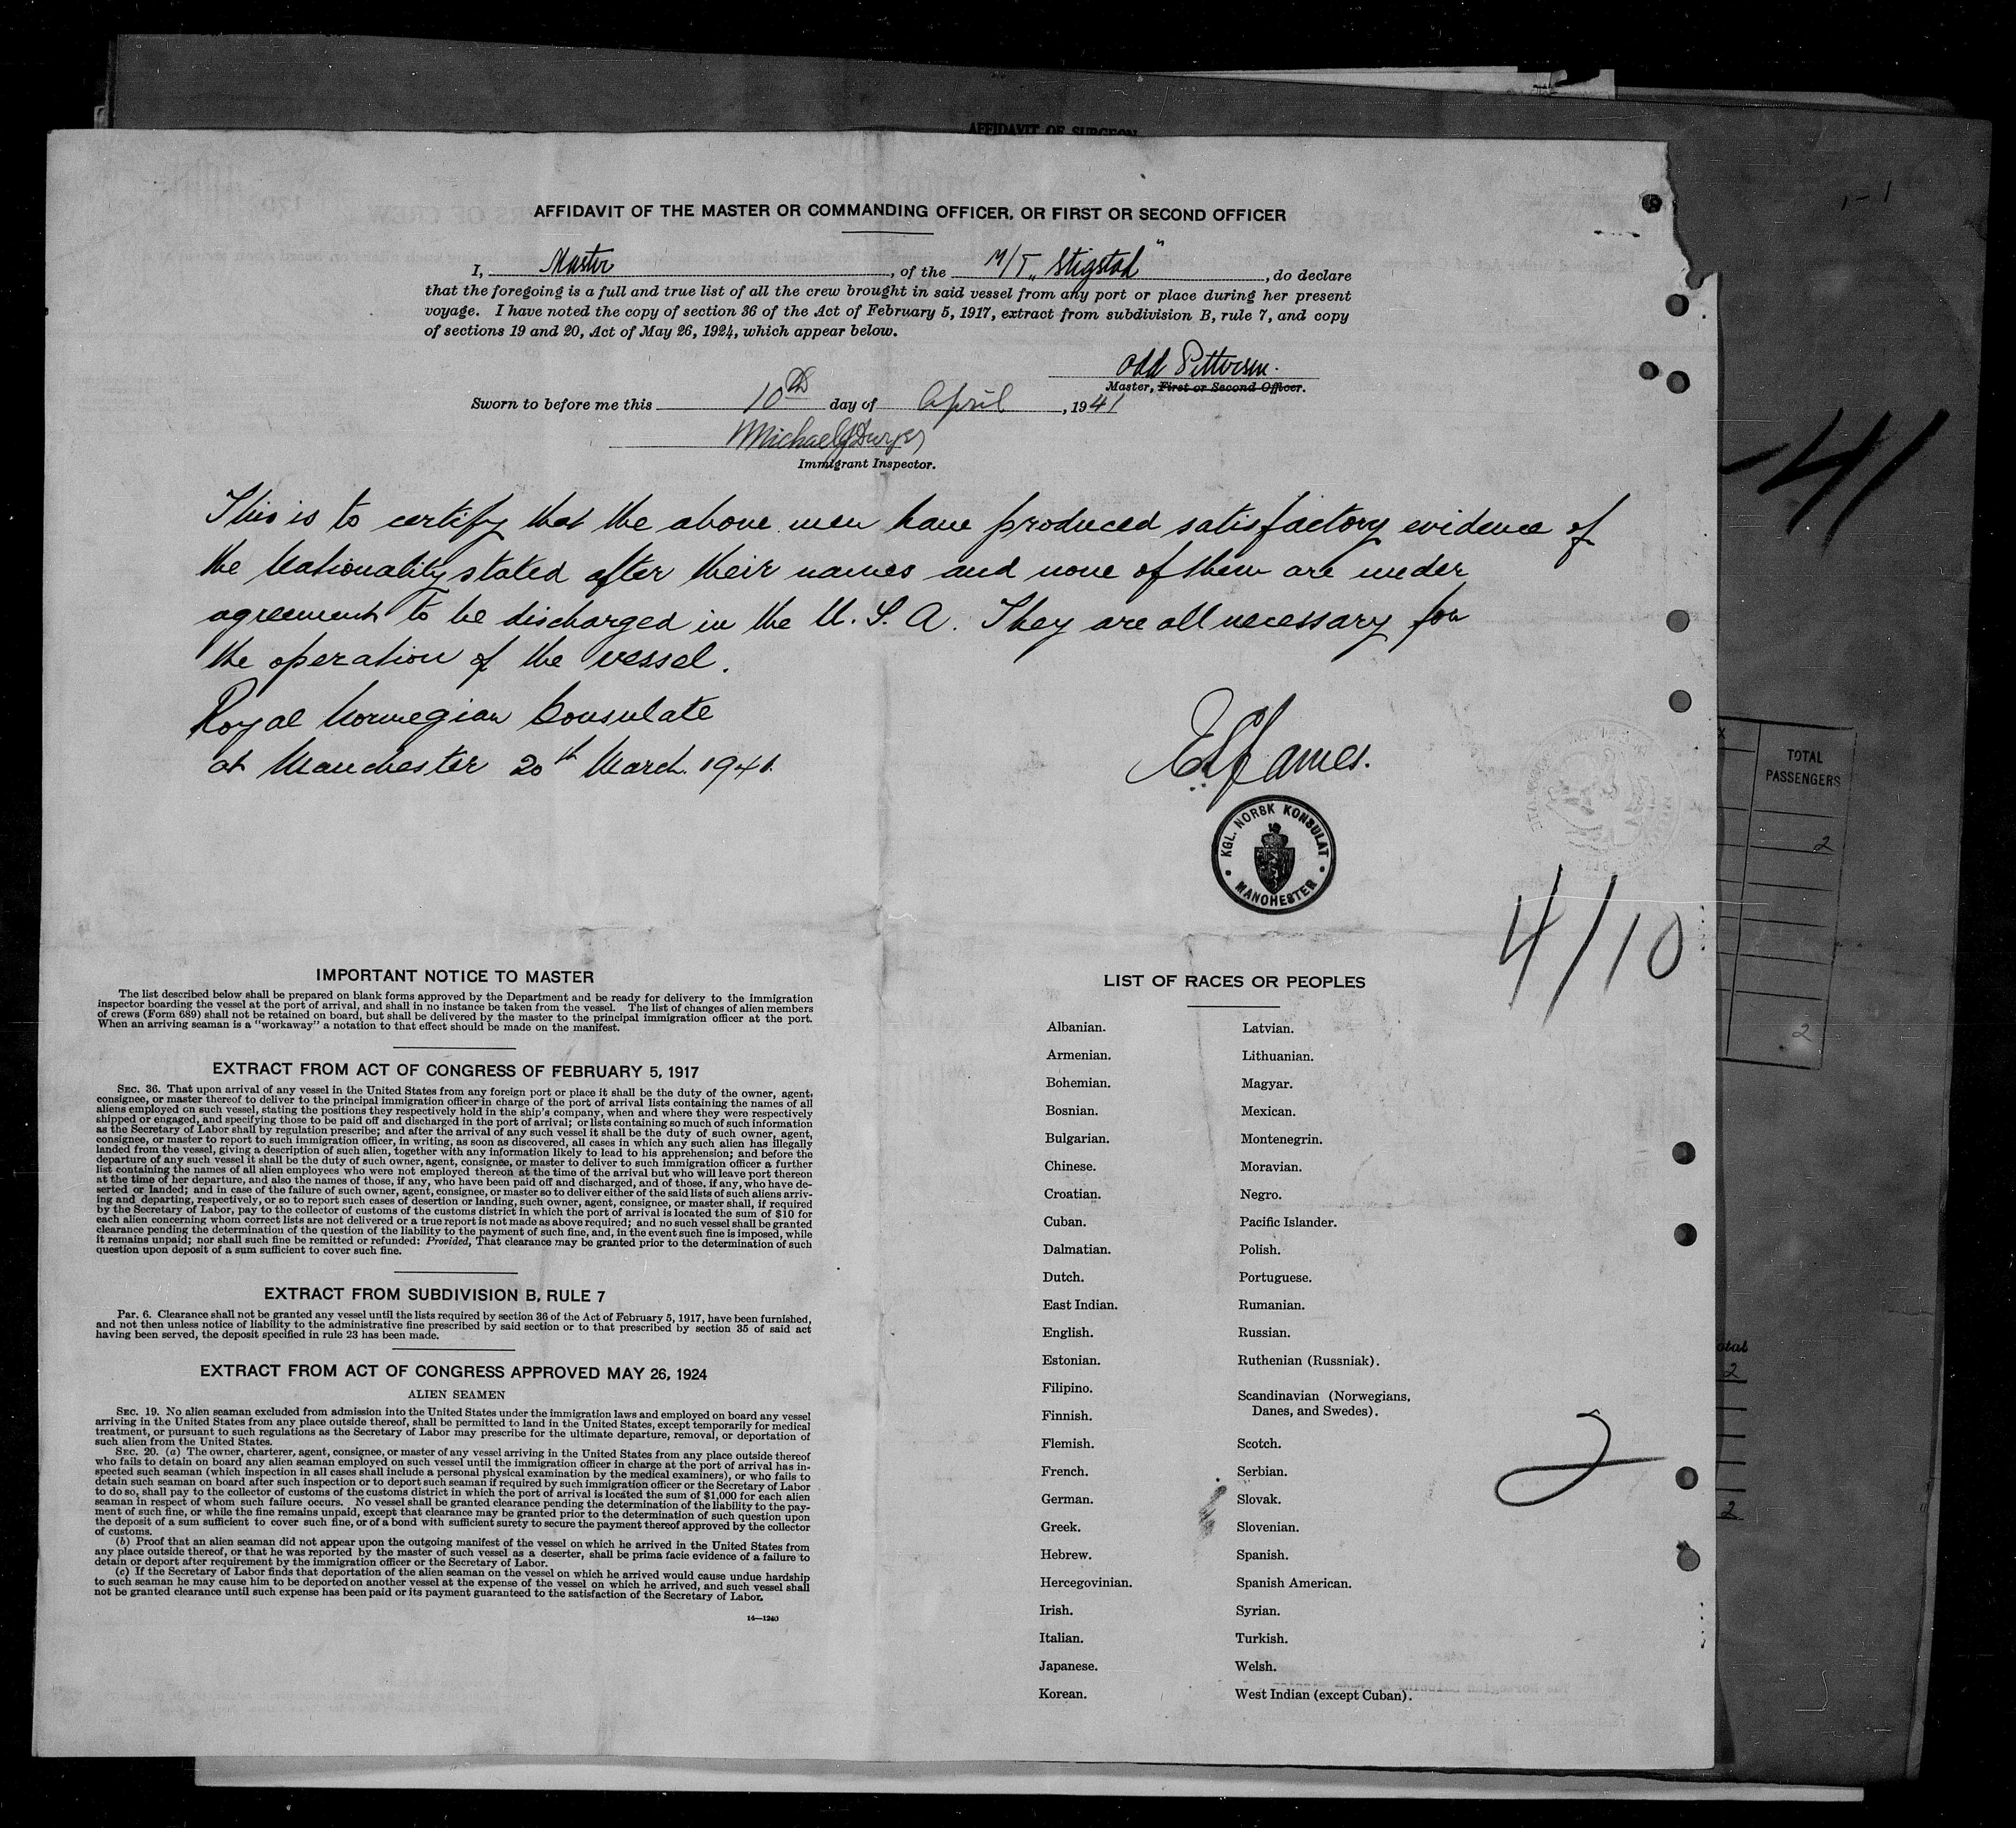 AFFIDAVIT OF SURGEON
AFFIDAVIT OF THE MASTER OR COMMANDING OFFICER, OR FIRST OR SECOND OFFICER
I, Master, of the M/T „Stigstad", do declare
that the foregoing is a full and true list of all the crew brought in said vessel from any port or place during her present
voyage. I have noted the copy of section 36 of the Act of February 5, 1917, extract from subdivision B, rule 7, and copy
of sections 19 and 20, Act of May 26, 1924, which appear below.
Odd Pettersen.
Master, First or Second Officer.
Sworn to before me this 10th day of April, 1941
Michael
Immigrant Inspector.
This is to certify that the above men have produced satisfactory evidence of
the Nationality stated after their names and none of them are under
agreement to be discharged in the U. S. A. They are all necessary for
the operation of the vessel.
Royal Norwegian Consulate
at Manchester 20th March. 1941.
James.
KGL. NORSK KONSULAT
MANCHESTER
4/10
-41
TOTAL
PASSENGERS
2
2
IMPORTANT NOTICE TO MASTER
The list described below shall be prepared on blank forms approved by the Department and be ready for delivery to the immigration
inspector boarding the vessel at the port of arrival, and shall in no instance be taken from the vessel. The list of changes of alien members
of crews (Form 689) shall not be retained on board, but shall be delivered by the master to the principal immigration officer at the port.
When an arriving seaman is a "workaway" a notation to that effect should be made on the manifest.
EXTRACT FROM ACT OF CONGRESS OF FEBRUARY 5, 1917
SEC. 36. That upon arrival of any vessel in the United States from any foreign port or place it shall be the duty of the owner, agent,
consignee, or master thereof to deliver to the principal immigration officer in charge of the port of arrival lists containing the names of all
aliens employed on such vessel, stating the positions they respectively hold in the ship's company, when and where they were respectively
shipped or engaged, and specifying those to be paid off and discharged in the port of arrival; or lists containing so much of such information
as the Secretary of Labor shall by regulation prescribe; and after the arrival of any such vessel it shall be the duty of such owner, agent,
consignee, or master to report to such immigration officer, in writing, as soon as discovered, all cases in which any such alien has illegally
landed from the vessel, giving a description of such alien, together with any information likely to lead to his apprehension; and before the
departure of any such vessel it shall be the duty of such owner, agent, consignee, or master to deliver to such immigration officer a further
list containing the names of all alien employees who were not employed thereon at the time of the arrival but who will leave port thereon
at the time of her departure, and also the names of those, if any, who have been paid off and discharged, and of those, if any, who have de-
serted or landed; and in case of the failure of such owner, agent, consignee, or master so to deliver either of the said lists of such aliens arriv-
ing and departing, respectively, or so to report such cases of desertion or landing, such owner, agent, consignee, or master shall, if required
by the Secretary of Labor, pay to the collector of customs of the customs district in which the port of arrival is located the sum of $10 for
each alien concerning whom correct lists are not delivered or a true report is not made as above required; and no such vessel shall be granted
clearance pending the determination of the question of the liability to the payment of such fine, and, in the event such fine is imposed, while
it remains unpaid; nor shall such fine be remitted or refunded: Provided, That clearance may be granted prior to the determination of such
question upon deposit of a sum sufficient to cover such fine.
EXTRACT FROM SUBDIVISION B, RULE 7
Par. 6. Clearance shall not be granted any vessel until the lists required by section 36 of the Act of February 5, 1917, have been furnished,
and not then unless notice of liability to the administrative fine prescribed by said section or to that prescribed by section 35 of said act
having been served, the deposit specified in rule 23 has been made.
EXTRACT FROM ACT OF CONGRESS APPROVED MAY 26, 1924
ALIEN SEAMEN
SEC. 19. No alien seaman excluded from admission into the United States under the immigration laws and employed on board any vessel
arriving in the United States from any place outside thereof, shall be permitted to land in the United States, except temporarily for medical
treatment, or pursuant to such regulations as the Secretary of Labor may prescribe for the ultimate departure, removal, or deportation of
such alien from the United States.
SEC. 20. (a) The owner, charterer, agent, consignee, or master of any vessel arriving in the United States from any place outside thereof
who fails to detain on board any alien seaman employed on such vessel until the immigration officer in charge at the port of arrival has in-
spected such seaman (which inspection in all cases shall include a personal physical examination by the medical examiners), or who fails to
detain such seaman on board after such inspection or to deport such seaman if required by such immigration officer or the Secretary of Labor
to do so, shall pay to the collector of customs of the customs district in which the port of arrival is located the sum of $1,000 for each alien
seaman in respect of whom such failure occurs. No vessel shall be granted clearance pending the determination of the liability to the pay-
ment of such fine, or while the fine remains unpaid, except that clearance may be granted prior to the determination of such question upon
the deposit of a sum sufficient to cover such fine, or of a bond with sufficient surety to secure the payment thereof approved by the collector
of customs.
(b) Proof that an alien seaman did not appear upon the outgoing manifest of the vessel on which he arrived in the United States from
any place outside thereof, or that he was reported by the master of such vessel as a deserter, shall be prima facie evidence of a failure to
detain or deport after requirement by the immigration officer or the Secretary of Labor.
(c) If the Secretary of Labor finds that deportation of the alien seaman on the vessel on which he arrived would cause undue hardship
to such seaman he may cause him to be deported on another vessel at the expense of the vessel on which he arrived, and such vessel shall
not be granted clearance until such expense has been paid or its payment guaranteed to the satisfaction of the Secretary of Labor.
14—1240
LIST OF RACES OR PEOPLES
Albanian.
Armenian.
Bohemian.
Bosnian.
Bulgarian.
Chinese.
Croatian.
Cuban.
Dalmatian.
Dutch.
East Indian.
English.
Estonian.
Filipino.
Finnish.
Flemish.
French.
German.
Greek.
Hebrew.
Hercegovinian.
Irish.
Italian.
Japanese.
Korean.
Latvian.
Lithuanian.
Magyar.
Mexican.
Montenegrin.
Moravian.
Negro.
Pacific Islander.
Polish.
Portuguese.
Rumanian.
Russian.
Ruthenian (Russniak).
Scandinavian (Norwegians,
Danes, and Swedes).
Scotch.
Serbian.
Slovak.
Slovenian.
Spanish.
Spanish American.
Syrian.
Turkish.
Welsh.
West Indian (except Cuban).
2
otal
2
2